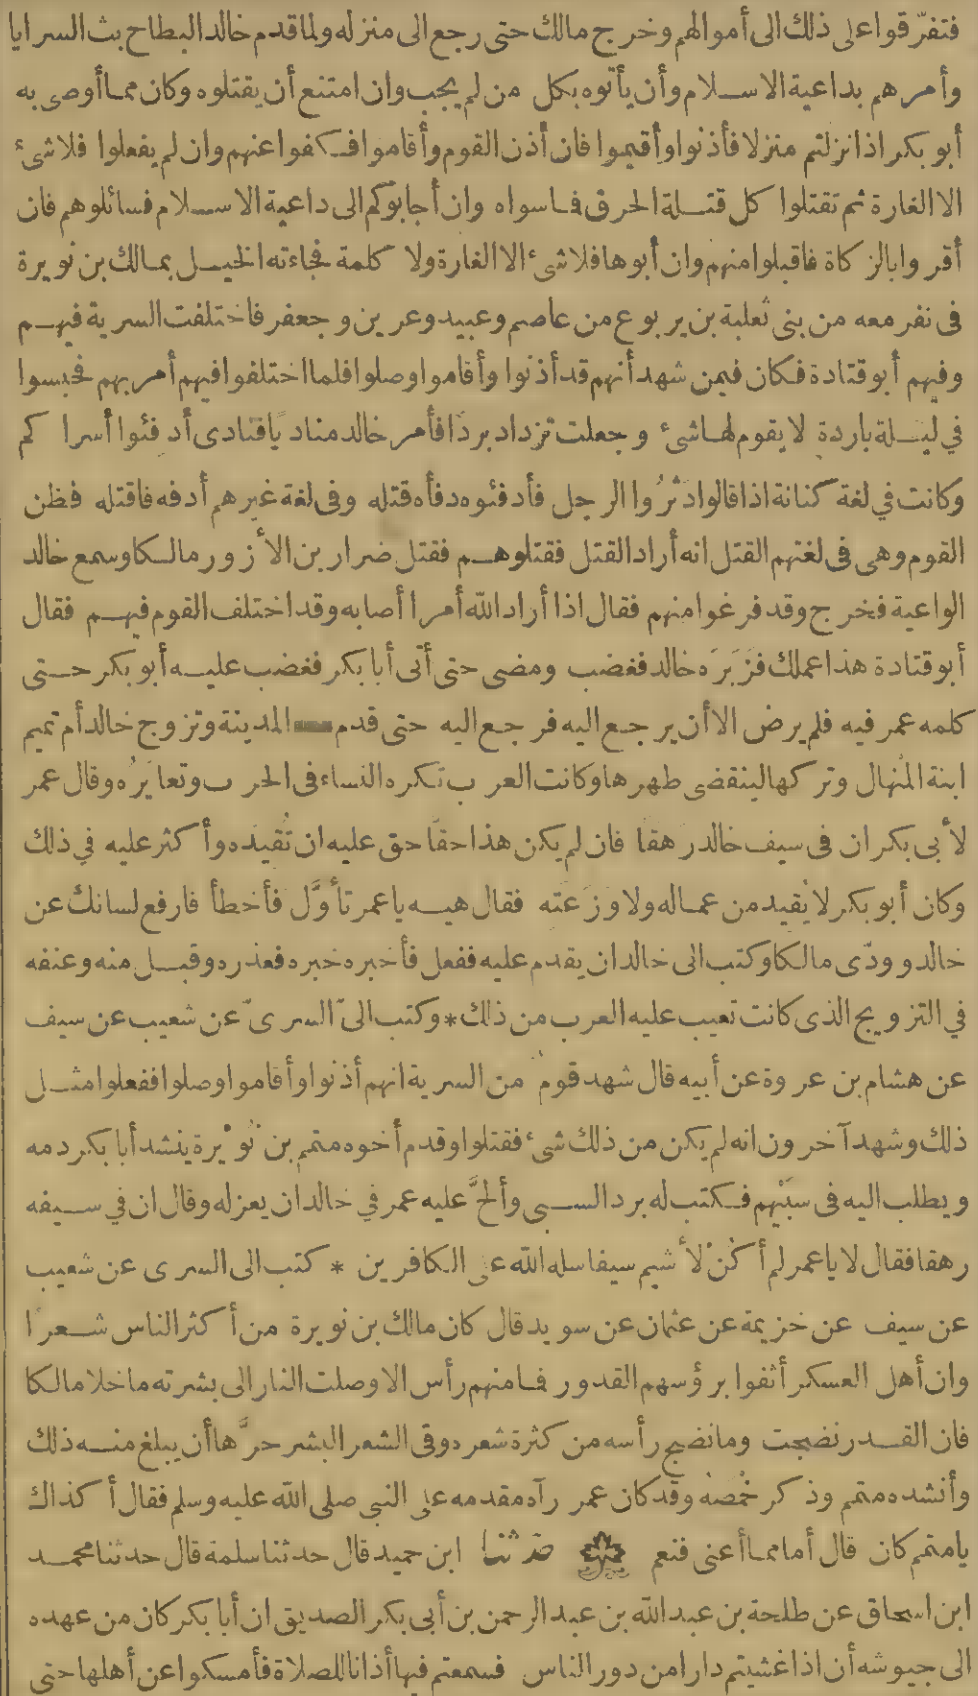 فتفرّقوا على ذلك الى أموالهم وخرج مالك حتى رجع الى منزله ولما قدم خالد البطاح بث السرايا
وأمرهم بداعية الاسلام وأن يأتوه بكل من لم يجب وان امتنع أن يقتلوه وكان مما أوصى به
أبو بكر اذا نزلتم منزلا فأذنوا وأقيموا فان أذن القوم وأقاموا فكفوا عنهم وان لم يفعلوا فلا شىء
الا الغارة ثم تقتلوا كل قتلة الحرق فما سواه وان أجابوكم الى داعية الاسلام فسائلوهم فان
أقروا بالزكاة فاقبلوا منهم وان أبوها فلا شىء الا الغارة ولا كلمة فجاءته الخيل بمالك بن نويرة
فى نفر معه من بنى ثعلبة بن يربوع من عاصم وعبيد وعرين وجعفر فاختلفت السرية فيهم
وفيهم أبو قتادة فكان فيمن شهد أنهم قد أذنوا وأقاموا وصلوا فلما اختلفوا فيهم أمر بهم فحبسوا
في ليلة باردة لا يقوم لها شىء وجعلت تزداد بردًا فأمر خالد مناديًا فنادى أدفئوا أسراكم
وكانت في لغة كنانة اذا قالوا ادثرُوا الرجل فأدفئوه دفأه قتله وفى لغة غيرهم أدفه فاقتله فظن
القوم وهى فى لغتهم القتل انه أراد القتل فقتلوهم فقتل ضرار بن الأزور مالكا وسمع خالد
الواعية فخرج وقد فرغوا منهم فقال اذا أراد الله أمرا أصابه وقد اختلف القوم فيهم فقال
أبو قتادة هذا عملك فزَبَرَه خالد فغضب ومضى حتى أتى أبا بكر فغضب عليه أبو بكر حتى
كلمه عمر فيه فلم يرض الا أن يرجع اليه فرجع اليه حتى قدم المدينة وتزوج خالد أم تميم
ابنة المُنهال وتركها لينقضى طهرها وكانت العرب تكره النساء فى الحرب وتعايرُه وقال عمر
لأبى بكر ان فى سيف خالد رهقًا فان لم يكن هذا حقًا حق عليه ان تُقيدَه وأكثر عليه في ذلك
وكان أبو بكر لا يُقيد من عماله ولا وَزَعَتِه فقال هيه يا عمر تأوَّل فأخطأ فارفع لسانك عن
خالد وودّى مالكا وكتب الى خالد ان يقدم عليه ففعل فأخبره خبره فعذره وقبل منه وعنفه
في التزويج الذى كانت تعيب عليه العرب من ذلك * وكتب الىّ السرىّ عن شعيب عن سيف
عن هشام بن عروة عن أبيه قال شهد قومٌ من السرية انهم أذنوا وأقاموا وصلوا ففعلوا مثل
ذلك وشهد آخرون انه لم يكن من ذلك شىء فقتلوا وقدم أخوه متمم بن نُوْيرة ينشد أبا بكر دمه
ويطلب اليه فى سبْيهم فكتب له برد السبى وألحَّ عليه عمر في خالد ان يعزله وقال ان في سيفه
رهقا فقال لا يا عمر لم أكُنْ لأشيم سيفا سله الله على الكافرين * كتب الى السرى عن شعيب
عن سيف عن خزيمة عن عثمان عن سويد قال كان مالك بن نويرة من أكثر الناس شعرًا
وان أهل العسكر أثفوا برؤسهم القدور فما منهم رأس الا وصلت النار الى بشرته ما خلا مالكا
فان القدر نضجت وما نضج رأسه من كثرة شعره وقى الشعر البشر حرَّها أن يبلغ منه ذلك
وأنشده متمم وذكر خُمصَهُ وقد كان عمر رآه مقدمه على النبى صلى الله عليه وسلم فقال أكذاك
يا متمم كان قال أما مما أعنى فنعم حدثنا ابن حميد قال حدثنا سلمة قال حدثنا محمد
ابن اسحاق عن طلحة بن عبد الله بن عبد الرحمن بن أبى بكر الصديق ان أبا بكر كان من عهده
الى جيوشه أن اذا غشيتم دارا من دور الناس فسمعتم فيها أذانا للصلاة فأمسكوا عن أهلها حتى